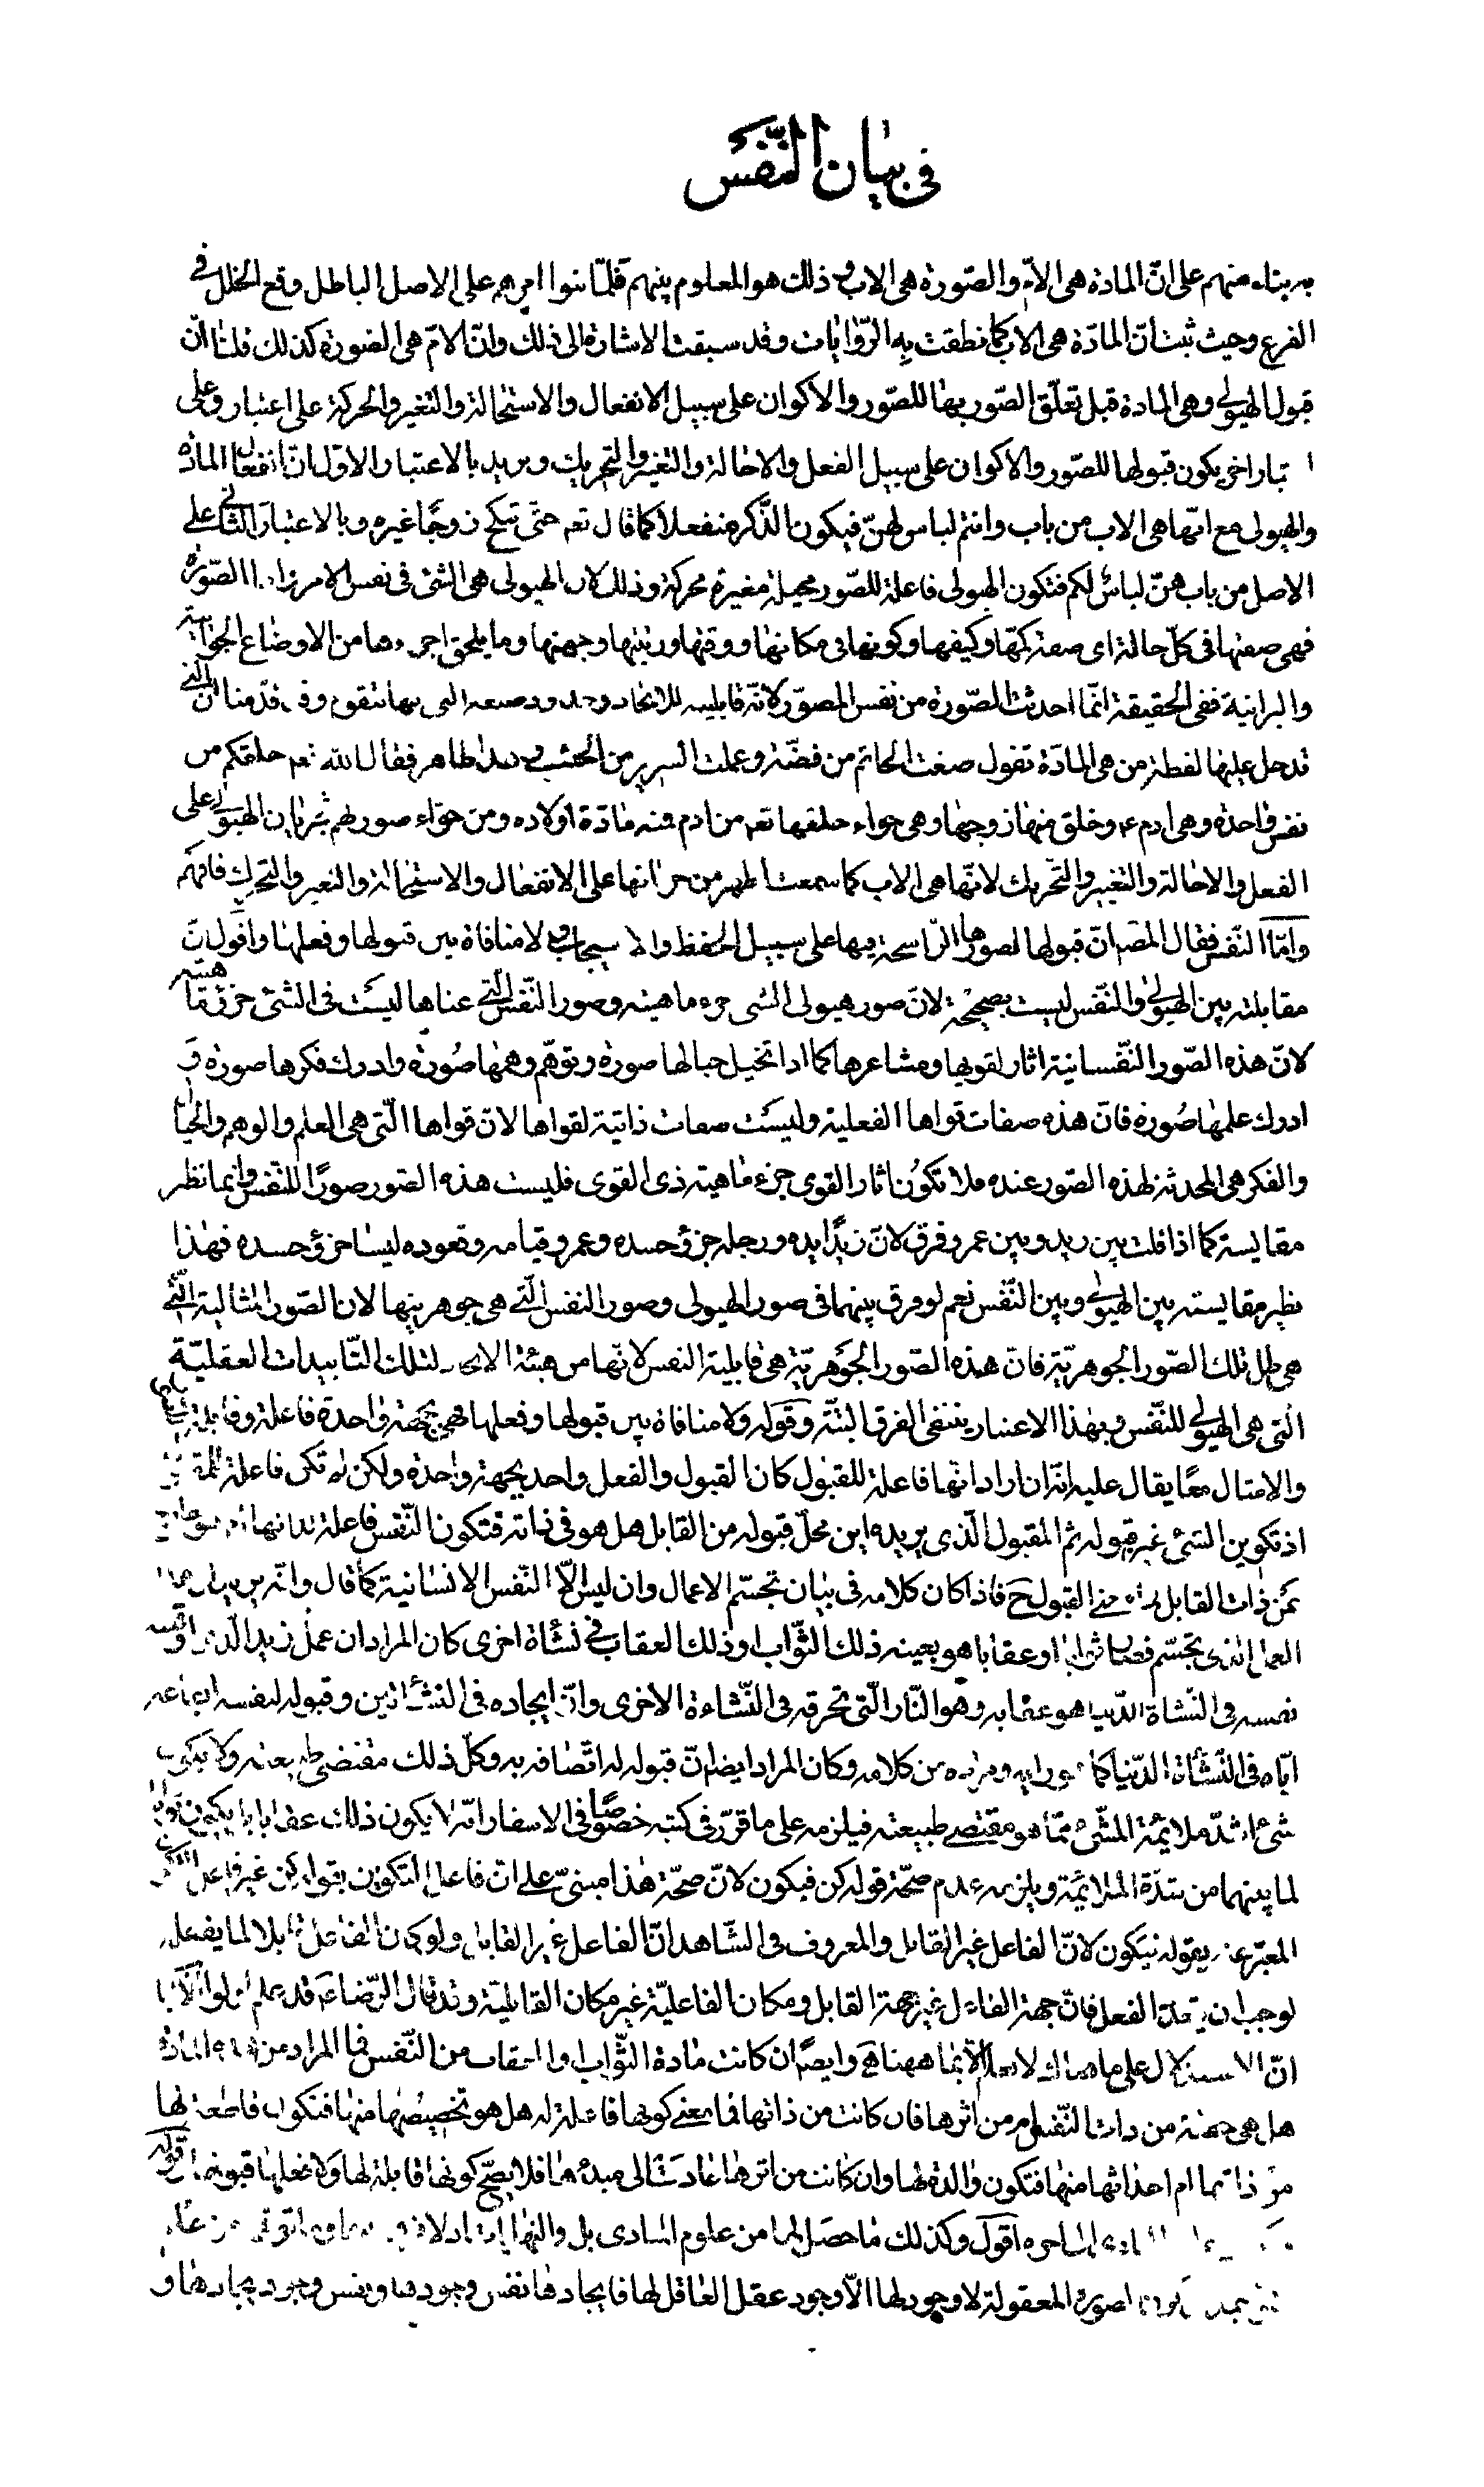 في بيان النفس
به بناء منهم على انّ المادة هى الامّ والصّورة هى الاب و ذلك هو المعلوم بينهم فلمّا بنوا امرهم على الاصل الباطل وقع الخلل فى
الفرع وحيث ثبت انّ المادّة هى الاب كما نطقت به الرّوايات وقد سبقت الاشارة الى ذلك وانّ الامّ هى الصورة كذلك قلنا انّ
قبول الهيولى وهى المادة قبل تعلّق الصّور بها للصّور والاكوان على سبيل الانفعال والاستحالة والتغير والحركة على اعتبار وعلى
تبار اخر يكون قبولها للصّور والاكوان على سبيل الفعل والاحالة والتغيير والتحريك ويريد بالاعتبار الاوّل انّ انفعال المادّة
والهيولى مع انّها هى الاب من باب وانتم لباس لهنّ فيكون الذّكر منفعلا كما قال تعه حتّى تنكح زوجًا غيره وبالاعتبار الثانى على
الاصل من باب هنّ لباس لكم فتكون الهيولى فاعلة للصّور محيلة مغيرة محركة وذلك لان الهيولى هى الشئ فى نفس الامر الصّورة
فهى صفتها فى كلّ حالة اى صفة كمّها وكيفها وكونها فى مكانها ووقتها ورتبتها وجهتها وما يلحق من الاوضاع الجوّانيّة
والبرانية ففى الحقيقة انّما احدثت الصّورة من نفس المصوّر لانّه قابليته للايجاد التى بها تتقوم قدّمنا انّ التى
تدخل عليها لفظة من هى المادّة تقول صغت الخاتم من فضّة وعملت السرير من الخشب و هذا ظاهر فقال الله تعه خلقكم من
نفس واحدة وهى ادم ع وخلق منها زوجها وهى حواء خلقها تعه من ادم فمنه مادّة اولاده ومن حوّاء صورهم الهيولى على
الفعل والاحالة والتغيير والتحريك لانّها هى الاب كما سمعت اظهر من على الانفعال والاستحالة والتغير والتحرك فافهم
وامّا النّفس فقال المصّ انّ قبولها لصورها الرّاسخة فيها على سبيل الحفظ والا ولا منافاة بين قبولها وفعلها واقول انّ
مقابلته بين الهيولى والنّفس ليست بصحيحة لانّ صور هيولى الشئ جزء ماهيته وصور النّفس الّتى عناها ليست فى الشئ جزء ماهيته
لانّ هذه الصّور النّفسانية اثار لقويها ومشاعرها كما اذا تخيل خيالها صورة وتوهّم وهمها صُورة وادرك فكرها صورة و
ادرك علمها صُورة فانّ هذه صفات قواها الفعلية وليست صفات ذاتية لقواها لانّ قواها الّتى هى العلم والوهم والخيال
والفكر هى المحدثة لهذه الصّور عنده فلا تكوُن اثار القوى جزء ماهية ذى القوى فليست هذه الصّور صورًا للنّفس وانما نظر
مقايسته كما اذا قلت بين زيد وبين عمرو فرق لانّ زيدًا يده ورجله جزؤ جسده وعمرو قيامه وقعوده ليسا جزؤ جسده فهذا
نظير مقايسته بين الهيولى وبين النّفس نعم لو فرق بينهما فى صور الهيولى وصور النفس الّتى هى جوهريتها لان الصّور المثالية الّتى
هى ظل تلك الصّور الجوهريّة فانّ هذه الصّور الجوهريّة هى قابلية النفس لانّها من هيئة لتلك التّاييدات العقليّة
الّتى هى الهيولى للنّفس وبهذا الاعتبار ينتفى الفرق البتّة وقوله ولا منافاة بين قبولها وفعلها فهى بجهة واحدة فاعلة وقابلة
والامتثال معًا يقال عليه انّه ان اراد انّها فاعلة للقبول كان القبول والفعل واحد بجهة واحدة ولكن لم تكن فاعلة
اذ تكوين الشئ غير قبوله ثم المقبول الّذى يريده اين محلّ قبوله من القابل هل هو فى ذاته فتكون النّفس فاعلة
ذات القابل القبول ح فاذا كان كلامه فى بيان تجسّم الاعمال وان ليس الّا النّفس الانسانية كما قال
الّذى تجسّم ثوابًا او عقابا هو بعينه ذلك الثّواب او ذلك العقاب فى نشأة اخرى كان المراد ان عمل زيد
نفسه فى النّشاة الدّنيا هو عقابه وهو النّار الّتى تحرقه فى النّشاءة الاخرى وانّ ايجاده فى النشأتين وقبوله لنفسه
ايّاه فى النّشأة الدّنيا كما من كلامه وكان المراد ايضا انّ قبوله له اتّصافه به وكلّ ذلك مقتضى طبيعته ولا يكون
شئ اشدّ ملايمة للشّئ ممّا هو مقتضى طبيعته فيلزمه على ما قرّر فى كتبه خصوصًا فى الاسفار انّه لا يكون ذلك عقابا
لما بينهما من شدّة الملائمة ويلزمه عدم صحّة قوله كن فيكون لانّ صحّة هذا مبنىّ على انّ فاعل التكوين بقوله كن غير فاعل
بقوله فيكون لانّ الفاعل غير القابل والمعروف فى الشّاهد انّ الفاعل غير القابل ولو كان الفاعل قابلا لما يفعل
لوجب ان الفعل فانّ جهة الفاعل غير جهة القابل ومكان الفاعليّة غير مكان القابلية وقد قال الرّضا ع قد علم اولوا الالباب
انّ الاستدلال على ما هناك لا يعلم الّا بما ههنا هى وايضًا ان كانت مادة الثّواب والعقاب من النّفس فما المراد من المادّة
هل هى من ذات النّفس ام من اثرها فان كانت من ذاتها فما معنى كونها فاعلة له هل هو تخصيصها منها فتكون لها
من ذاتها ام احداثها منها فتكون والدة لها وان كانت من اثرها عادت الى مبدئها فلا يصحّ كونها قابلة لها ولا فعلها قبولها قوله
اقول وكذلك ما حصل لها من علوم المبادى بل واليها
المعقولة لا وجود لها الّا وجود عقل العاقل لها فايجادها نفس وجودها ونفس وجود ايجادها و